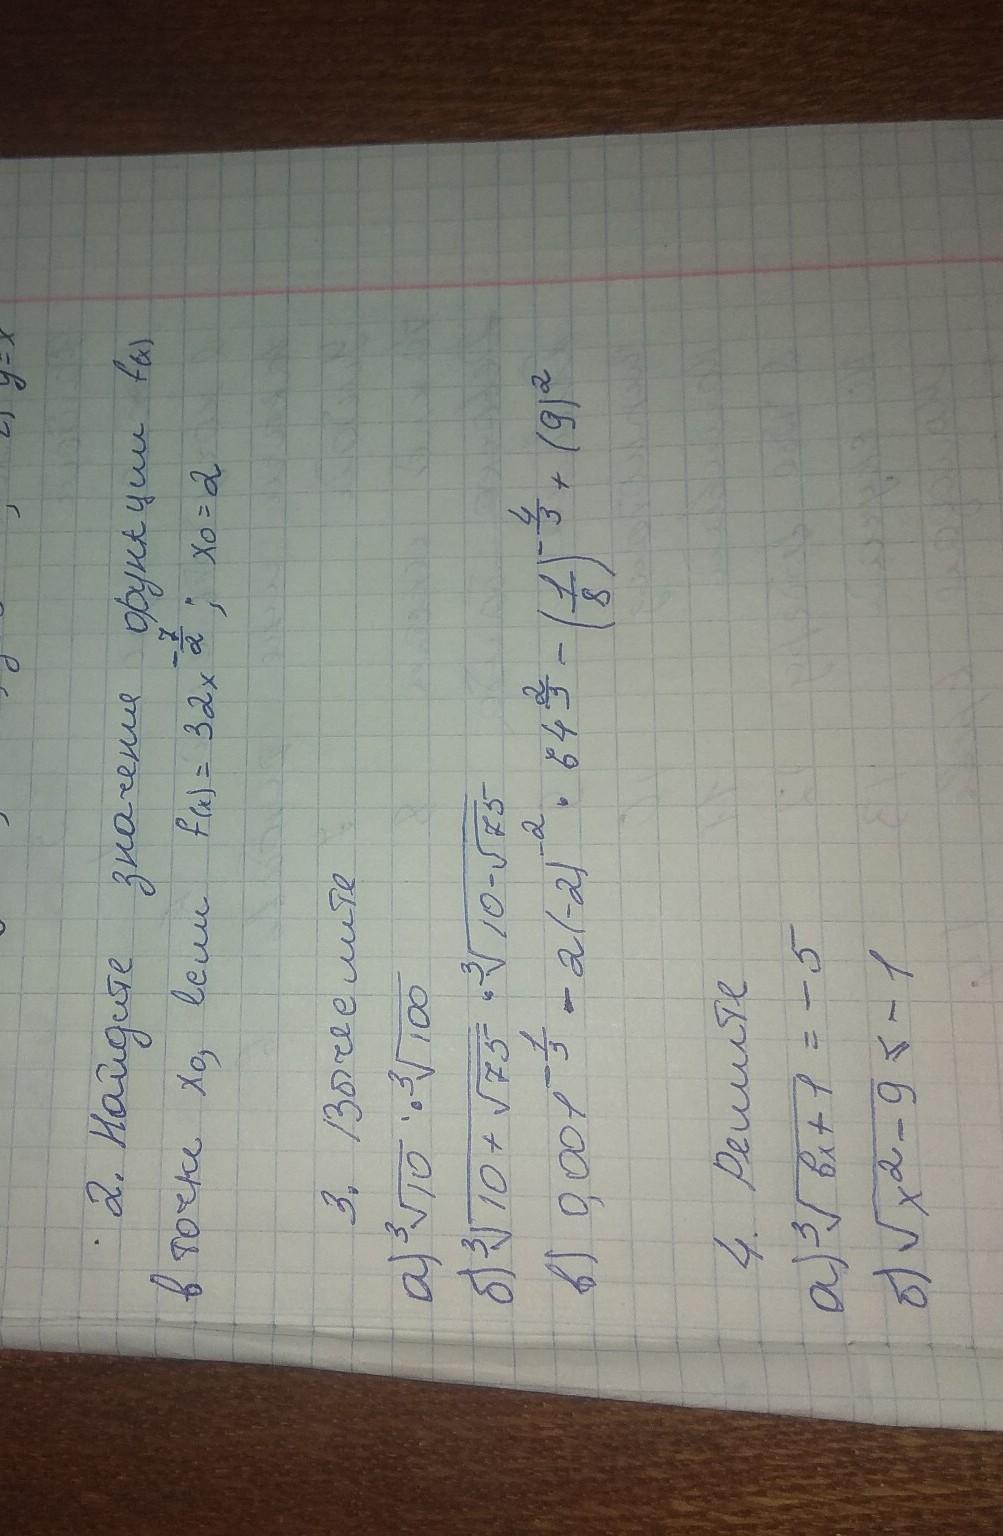 y=x
2. Найдите значение функции f(x)
в точке x₀, если f(x)=32x^(-7/2); x₀=2
3. Вычеслите
а) ³√10 · ³√100
б) ³√(10+√75) · ³√(10-√75)
в) 0,001^(-1/3) - 2(-2)^(-2) · 64^(2/3) - (1/8)^(-4/3) + (9)^2
4. Решите
а) ³√(6x+1) = -5
б) √(x²-9) ≤ -1